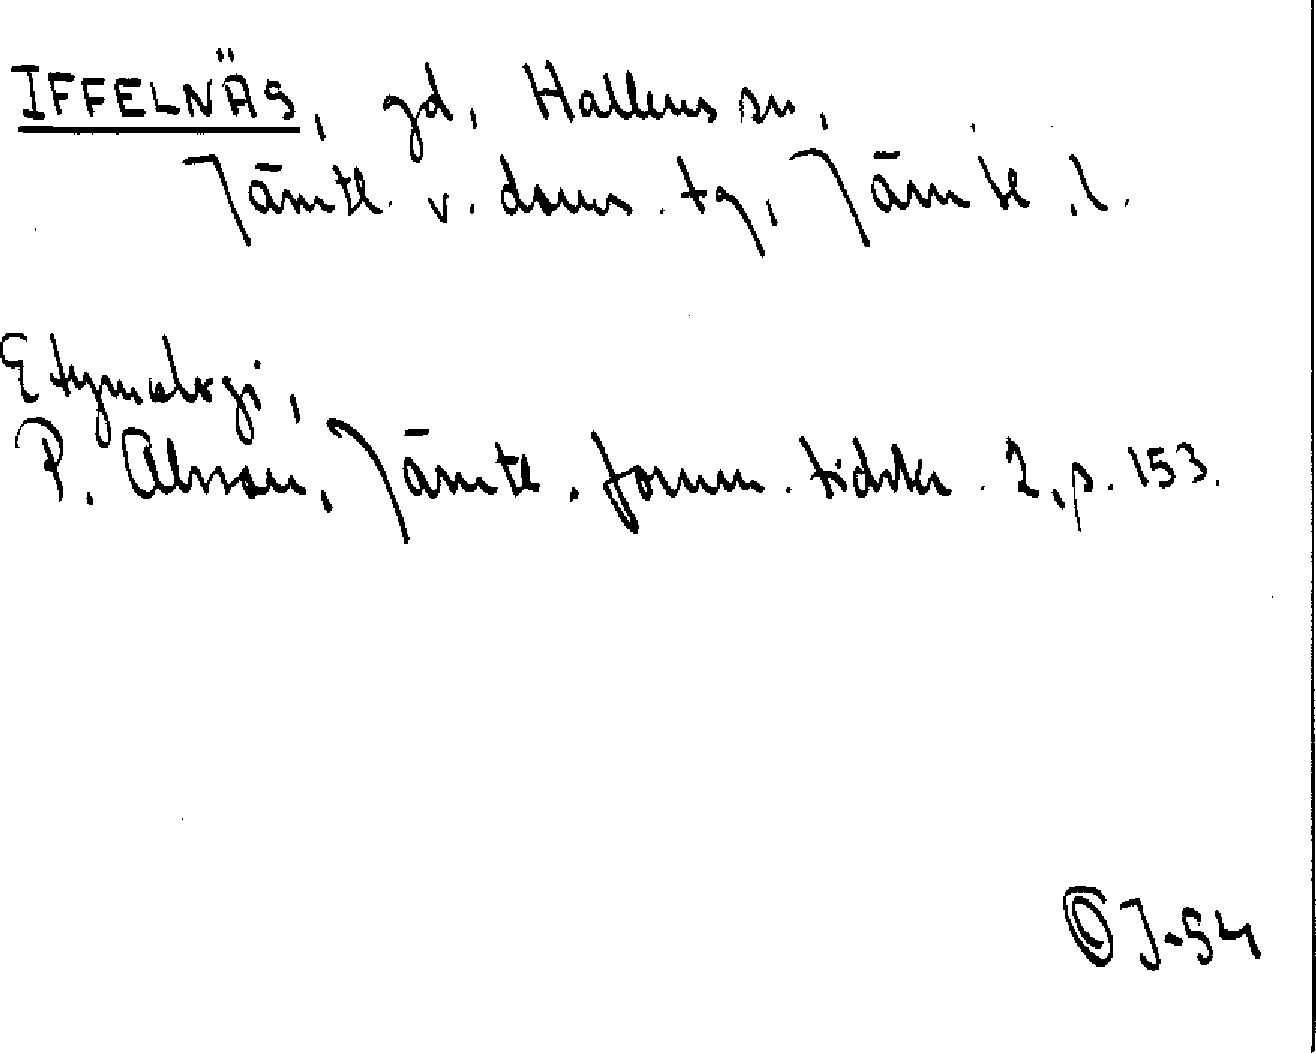 IFFELNÄS, gd, Hallens sn,
Jämtl. v. doms. tg, Jämtl. l.
Etymologi,
P. Olsson, Jämtl. fornm. tidskr. 2, p. 153.
J-54